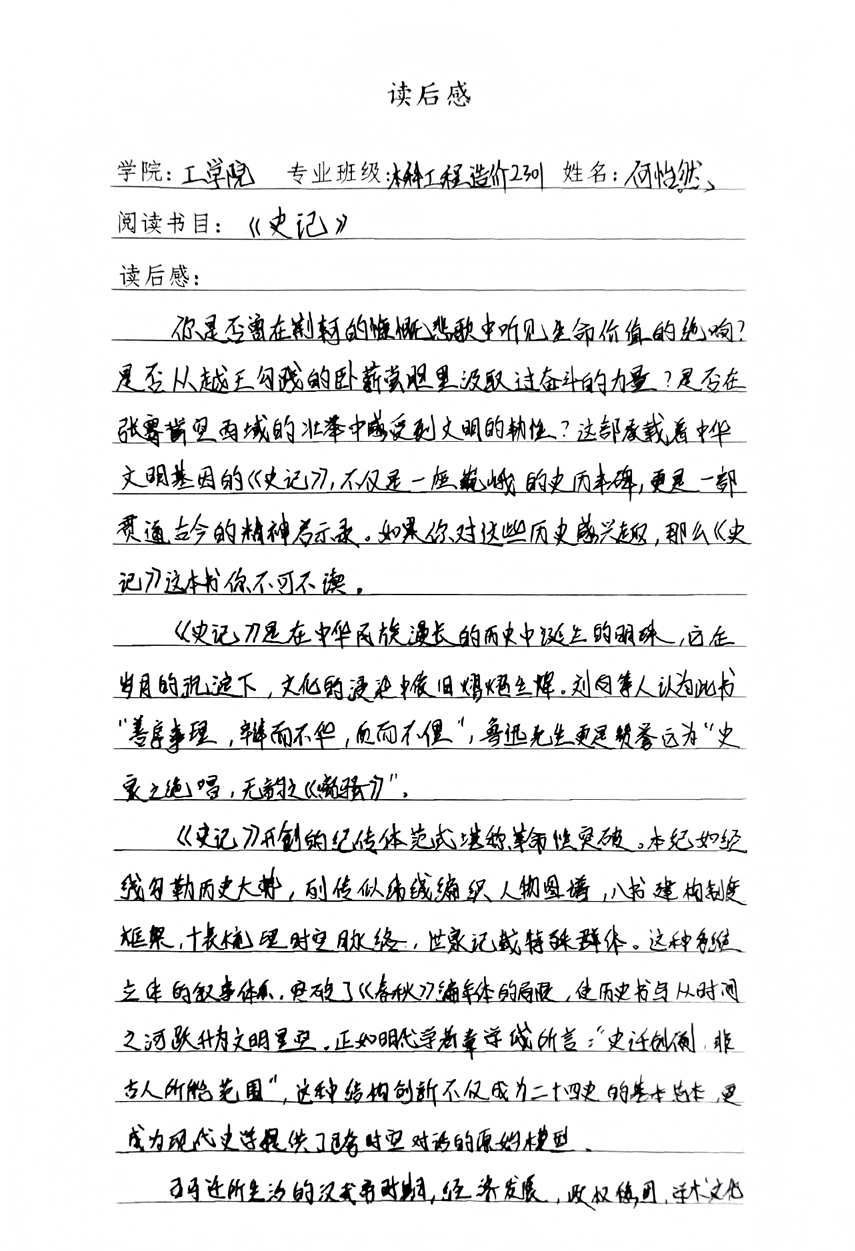 读后感
学院：工学院 专业班级：本科工程造价2301 姓名：何怡然
阅读书目：《史记》
读后感：
你是否曾在荆轲的慷慨悲歌中听见生命价值的绝响？
是否从越王勾践的卧薪尝胆里汲取过奋斗的力量？是否在
张骞凿空西域的壮举中感受到文明的韧性？这部承载着中华
文明基因的《史记》，不仅是一座巍峨的史历丰碑，更是一部
贯通古今的精神启示录。如果你对这些历史感兴趣，那么《史
记》这本书你不可不读。
《史记》是在中华民族漫长的历史中诞生的明珠，它在
岁月的沉淀下，文化的浸染中依旧熠熠生辉。刘向等人认为此书
“善序事理，辩而不华，质而不俚”，鲁迅先生更是赞誉它为“史
家之绝唱，无韵之《离骚》”。
《史记》开创的纪传体范式堪称革命性突破。本纪如经
线勾勒历史大势，列传似纬线编织人物图谱，八书建构制度
框架，十表梳理时空脉络，世家记载特殊群体。这种系统
立体的叙事体系，突破了《春秋》编年体的局限，使历史书写从时间
之河跃升为文明星空。正如明代学者章学诚所言：“史迁创例，非
古人所能范围”，这种结构创新不仅成为二十四史的基本范本，更
成为现代史学提供了跨时空对话的原始模型。
司马迁所生活的汉武帝时期，经济发展，政权稳固，学术文化